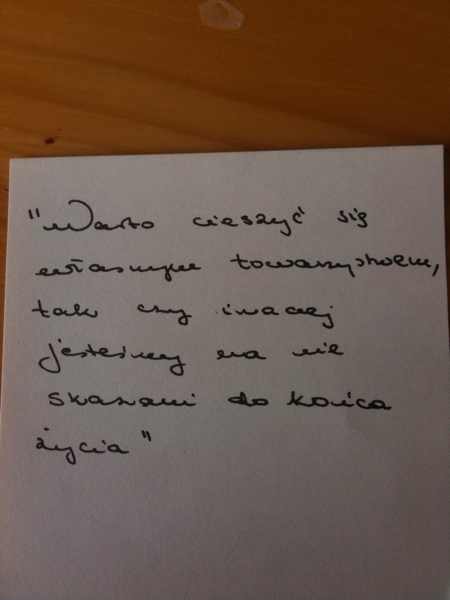 "Warto cieszyć się
własnym towarzystwem,
tak czy inaczej
jesteśmy na nie
skazani do końca
życia"